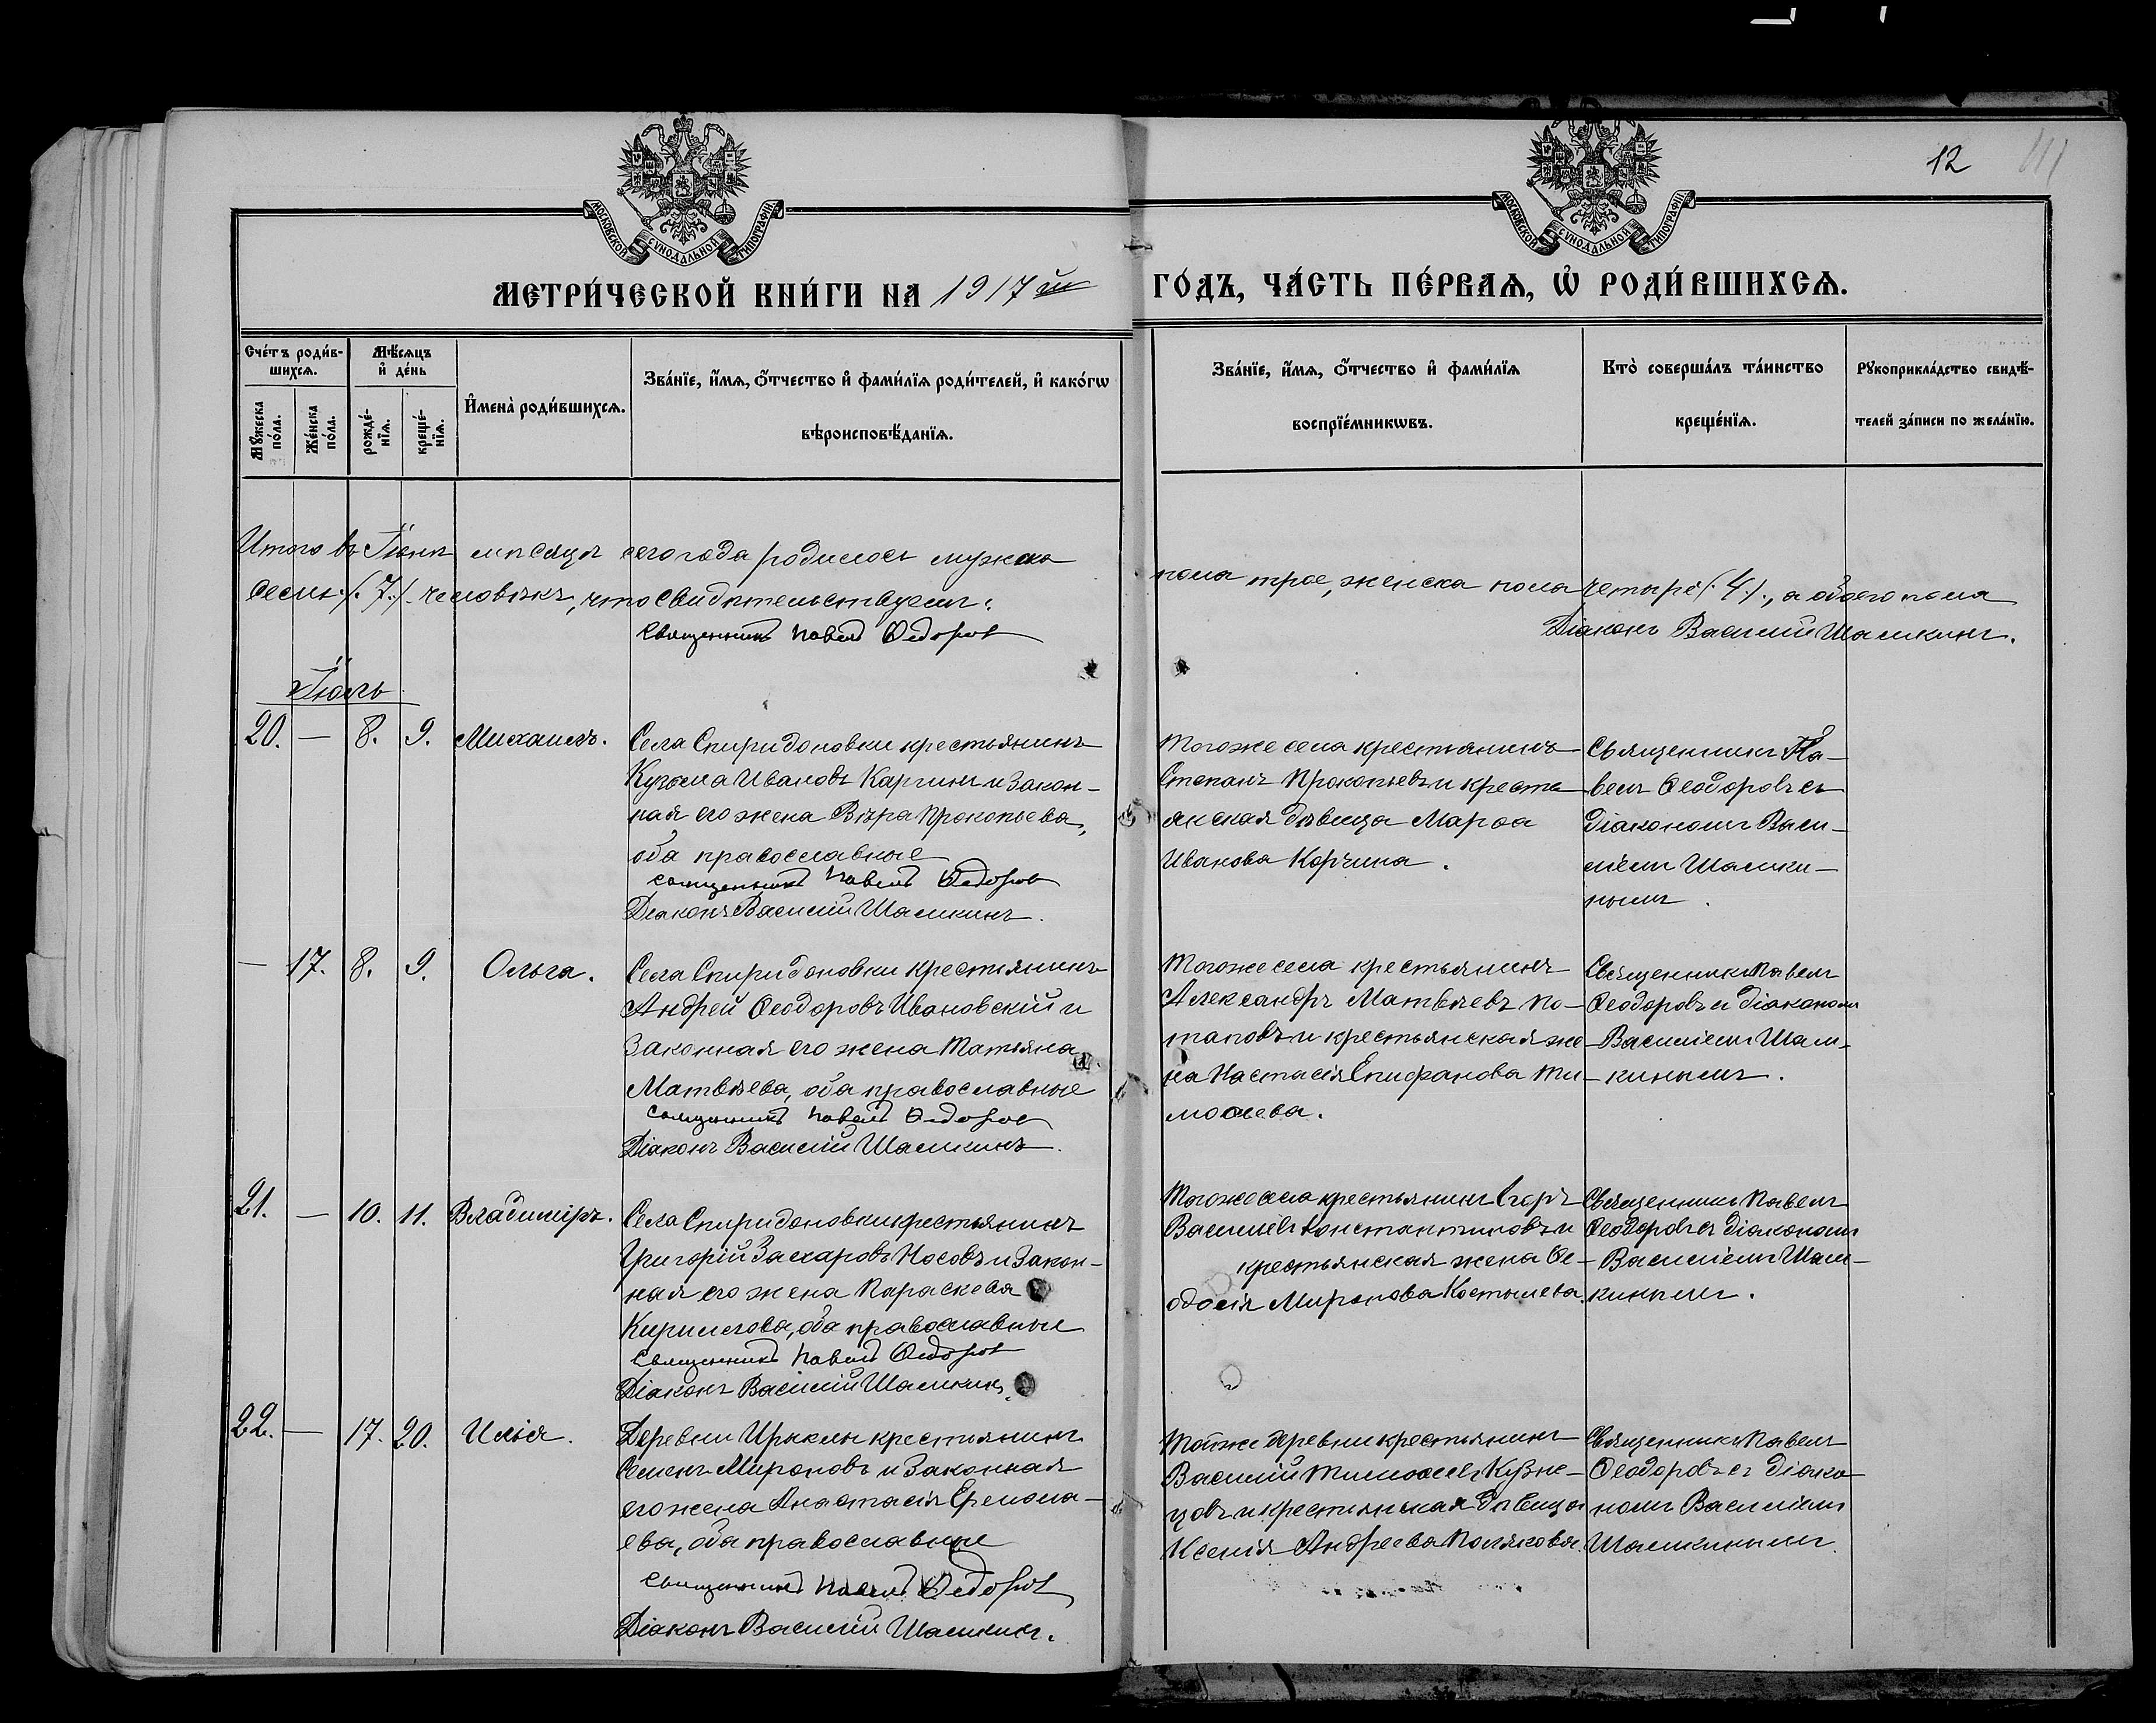 12
МОСКОВСКОЙ СѴНОДАЛЬНОЙ ТИПОГРАФІИ
МОСКОВСКОЙ СѴНОДАЛЬНОЙ ТИПОГРАФІИ
МЕТРИ́ЧЕСКОЙ КНИ́ГИ НА 1917й ГО́ДЪ, ЧА́СТЬ ПЕ́РВАѦ, Ѡ҆ РОДИ́ВШИХСѦ.
Сче́тъ роди́в-
шихсѧ.
Мꙋ́жеска
по́ла.
Же́нска
по́ла.
Мѣ́сѧцъ
и҆ де́нь
рожде́-
нїѧ.
креще́-
нїѧ.
И҆мена̀ роди́вшихсѧ.
Зва́нїе, и҆́мѧ, ѻ҆́тчество и҆ фами́лїѧ роди́телей, и҆ како́гѡ
вѣроисповѣ́данїѧ.
Зва́нїе, и҆́мѧ, ѻ҆́тчество и҆ фами́лїѧ
воспрїе́мникѡвъ.
Кто̀ соверша́лъ та́инство
креще́нїѧ.
Рꙋкоприкла́дство свидѣ́-
телей за́писи по жела́нїю.
Итого въ Іюнѣ мѣсяцѣ сего года родилось мужска
пола трое, женска пола четыре (4), а обоего пола
семь (7) человѣкъ, что свидѣтельствуемъ:
Священникъ Павелъ Ѳедоровъ
Діаконъ Василій Шамкинъ.
Іюль
20. — 8. 9. Михаилъ.
Села Спиридоновки крестьянинъ
Кузьма Ивановъ Каргинъ и закон-
ная его жена Вѣра Прокопьева,
оба православные
Священникъ Павелъ Ѳедоровъ
Діаконъ Василій Шамкинъ.
Тогоже села крестьянинъ
Степанъ Прокопьевъ и кресть
янская дѣвица Марѳа
Иванова Корчина.
Священникъ Па-
велъ Ѳеодоровъ съ
діакономъ Васи-
ліемъ Шамки-
нымъ.
— 17. 8. 9. Ольга.
Села Спиридоновки крестьянинъ
Андрей Ѳеодоровъ Ивановскій и
законная его жена Татьяна
Матвѣева, оба православные
Священникъ Павелъ Ѳедоровъ
Діаконъ Василій Шамкинъ.
Тогоже села крестьянинъ
Александръ Матвѣевъ По-
таповъ и крестьянская же-
на Настасія Епифанова Ти-
моѳеева.
Священникъ Павелъ
Ѳеодоровъ и діакономъ
Василіемъ Шам-
кинымъ.
21. — 10. 11. Владиміръ.
Села Спиридоновки крестьянинъ
Григорій Захаровъ Носовъ и закон-
ная его жена Параскева
Кириллова, оба православные
Священникъ Павелъ Ѳедоровъ
Діаконъ Василій Шамкинъ.
Тогоже села крестьянинъ Егоръ
Василіевъ Константиновъ и
крестьянская жена Ѳе-
одосія Миронова Костылева.
Священникъ Павелъ
Ѳеодоровъ съ діакономъ
Василіемъ Шам-
кинымъ.
22. — 17. 20. Илія.
Деревни Ирыклы крестьянинъ
Семенъ Мироновъ и законная
его жена Анастасія Ермола-
ева, оба православные
Священникъ Павелъ Ѳедоровъ
Діаконъ Василій Шамкинъ.
Тойже деревни крестьянинъ
Василій Тимоѳеевъ Кузне-
цовъ и крестьянская дѣвица
Ксенія Андреева Полякова.
Священникъ Павелъ
Ѳеодоровъ съ діако
номъ Василіемъ
Шамкинымъ.